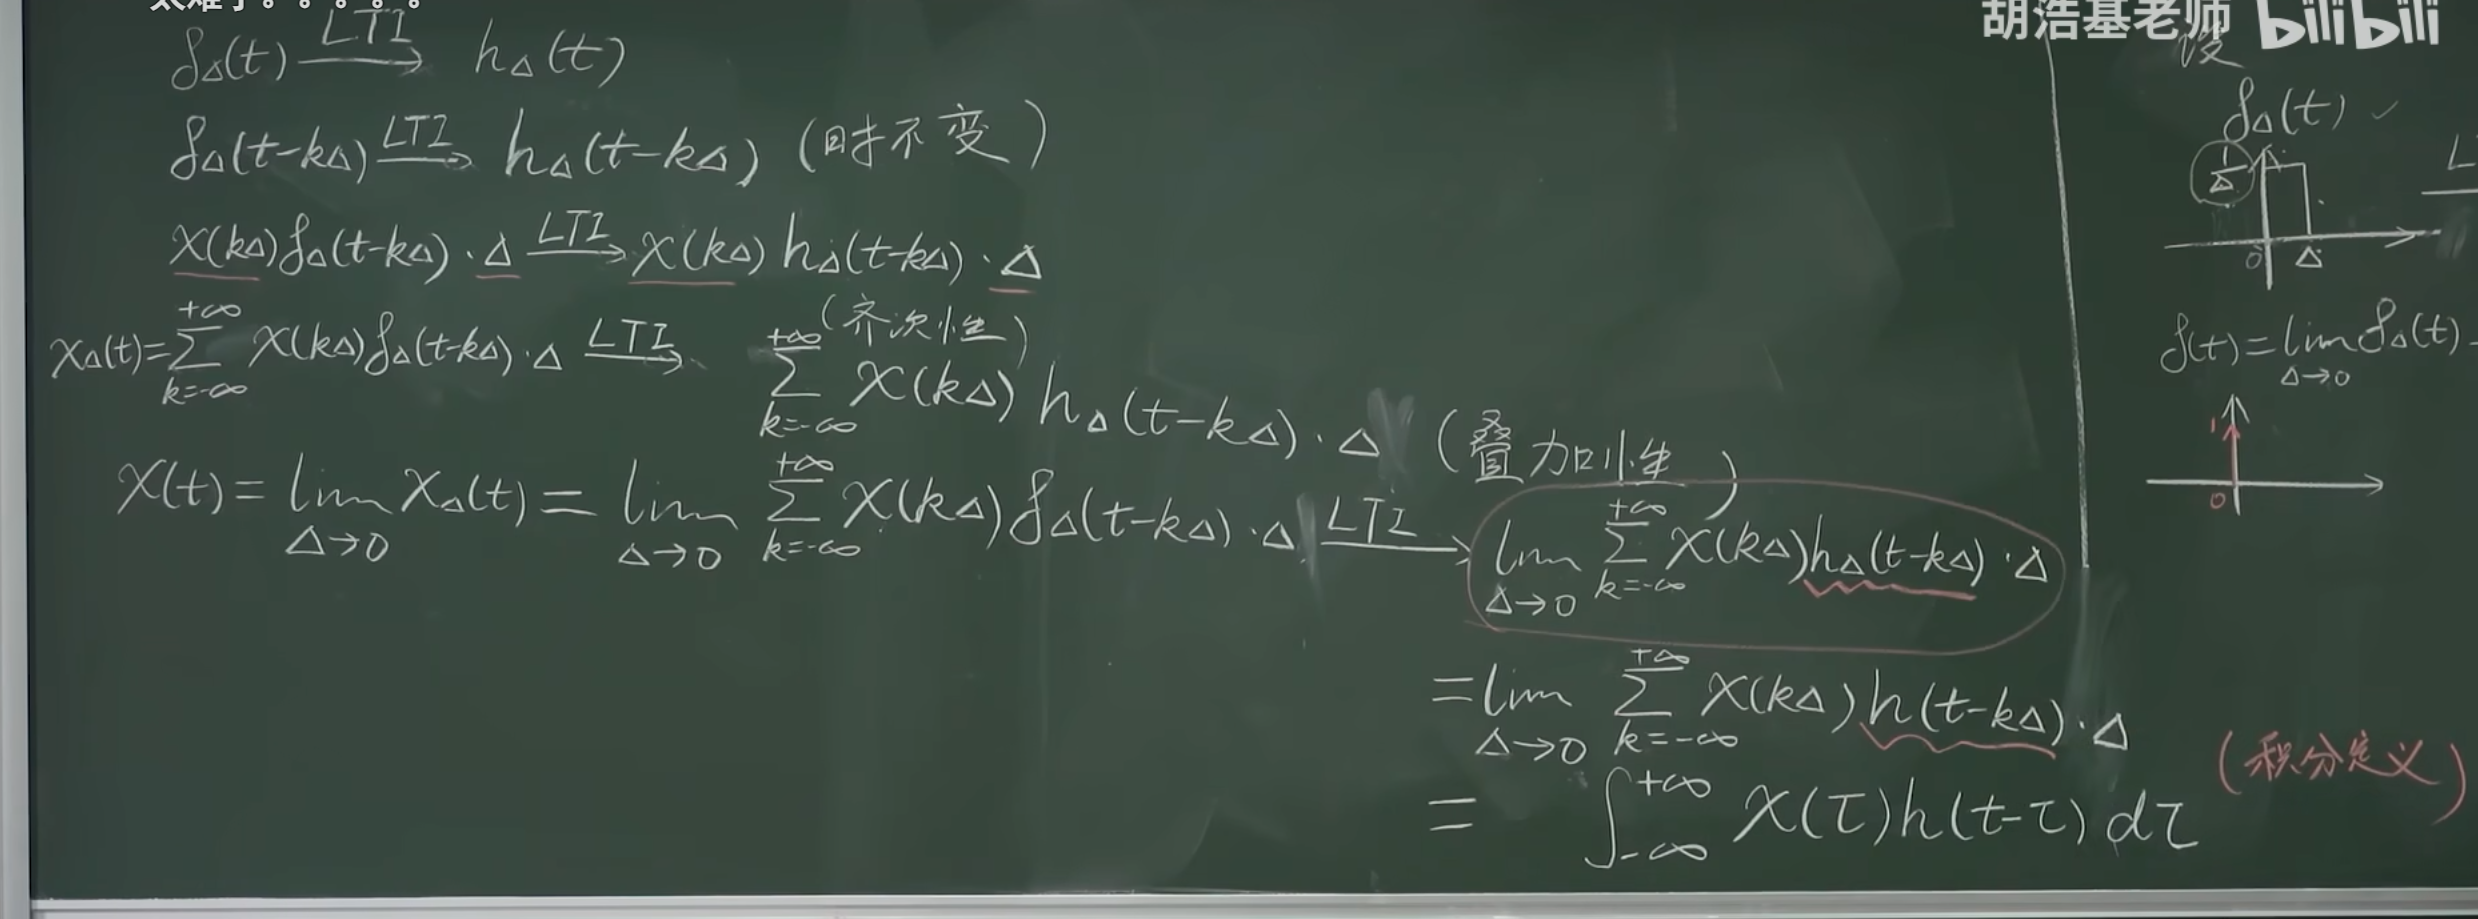 δ_Δ(t) —LTI→ h_Δ(t)
δ_Δ(t-kΔ) —LTI→ h_Δ(t-kΔ) (时不变)
x(kΔ)δ_Δ(t-kΔ)·Δ —LTI→ x(kΔ)h_Δ(t-kΔ)·Δ
(齐次性)
x_Δ(t)=∑_{k=-∞}^{+∞} x(kΔ)δ_Δ(t-kΔ)·Δ —LTI→ ∑_{k=-∞}^{+∞} x(kΔ)h_Δ(t-kΔ)·Δ (叠加性)
x(t)=lim_{Δ→0} x_Δ(t)=lim_{Δ→0} ∑_{k=-∞}^{+∞} x(kΔ)δ_Δ(t-kΔ)·Δ —LTI→ lim_{Δ→0} ∑_{k=-∞}^{+∞} x(kΔ)h_Δ(t-kΔ)·Δ
=lim_{Δ→0} ∑_{k=-∞}^{+∞} x(kΔ)h(t-kΔ)·Δ
=∫_{-∞}^{+∞} x(τ)h(t-τ)dτ (积分定义)
胡浩基老师 bilibili
设
δ_Δ(t) ✓
1/Δ
0 Δ
L
δ(t)=lim_{Δ→0} δ_Δ(t)
1
0